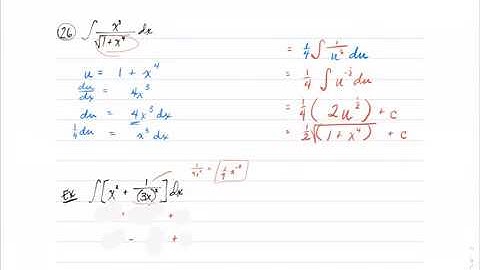 26 ∫ x³/√(1 + x⁴) dx
u = 1 + x⁴
du/dx = 4x³
du = 4x³ dx
¼ du = x³ dx
= ¼ ∫ 1/u^½ du
= ¼ ∫ u^-½ du
= ¼ ( 2u^½ ) + c
= ½ √(1 + x⁴) + c
Ex ∫ [ x² + 1/(3x)² ] dx
1/9x² = 1/9 x⁻²
+
- +